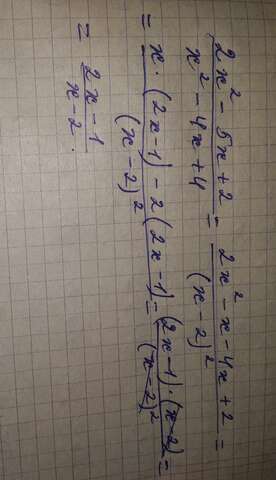 (2x² - 5x + 2)/(x² - 4x + 4) = (2x² - x - 4x + 2)/(x - 2)² =
= (x · (2x - 1) - 2(2x - 1))/(x - 2)² = ((2x - 1) · (x - 2))/(x - 2)² =
= (2x - 1)/(x - 2).